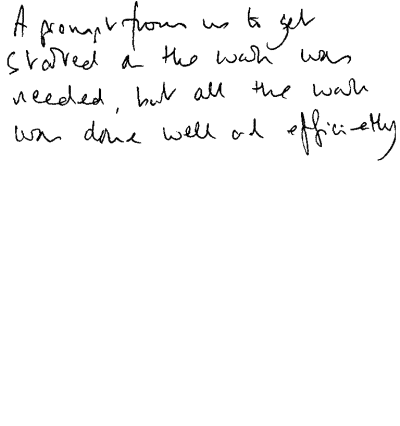 A prompt from us to get
started on the work was
needed, but all the work
was done well and efficiently